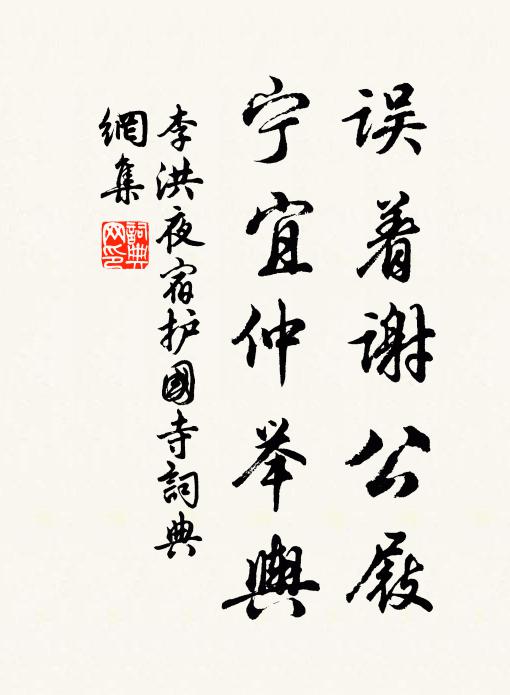 误着谢公屐
宁宜仲举舆
李洪夜宿护國寺詞典
網集
詞典
网印